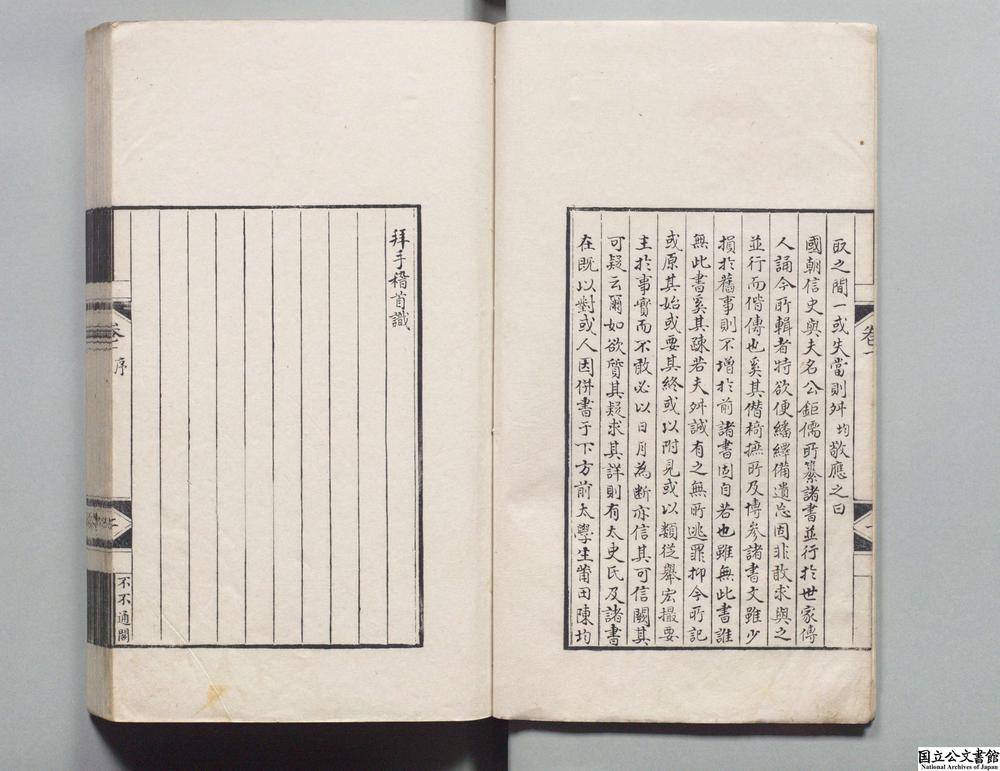 取之間一或失當則舛均敬應之曰
國朝信史與夫名公鉅儒所纂諸書並行於世家傳
人誦今所輯者特欲便繙繹備遺忘固非敢求與之
並行而偕傳也奚其僭掎摭所及博參諸書文雖少
損於舊事則不增於前諸書固自若也雖無此書誰
無此書奚其疎若夫舛誠有之無所逃罪抑今所記
或原其始或要其終或以附見或以類從舉宏撮要
主於事實而不敢必以日月為斷亦信其可信闕其
可疑云爾如欲質其疑求其詳則有太史氏及諸書
在既以對或人因併書于下方前太學生莆田陳均
卷一
一
拜手稽首識
卷一
序
不不通閣
国立公文書館
National Archives of Japan